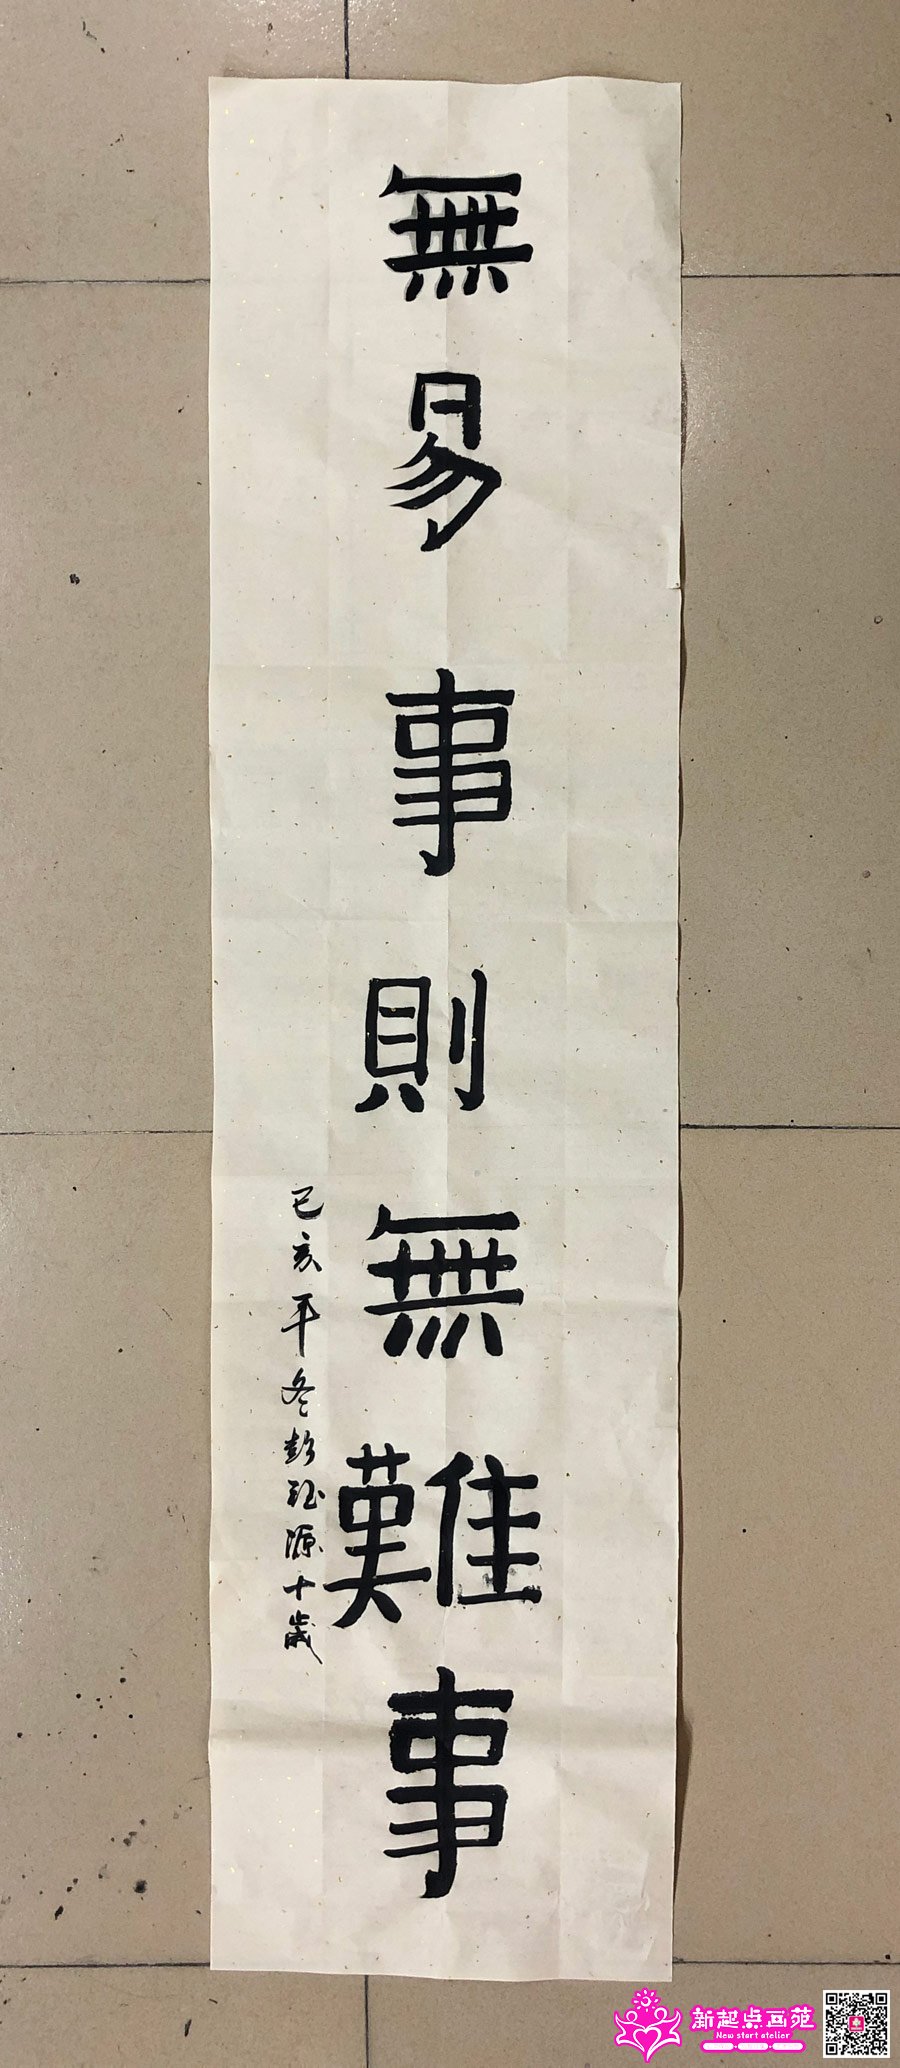 無易事則無難事
己亥年冬彭珆源十歲
新起点画苑
New start atelier